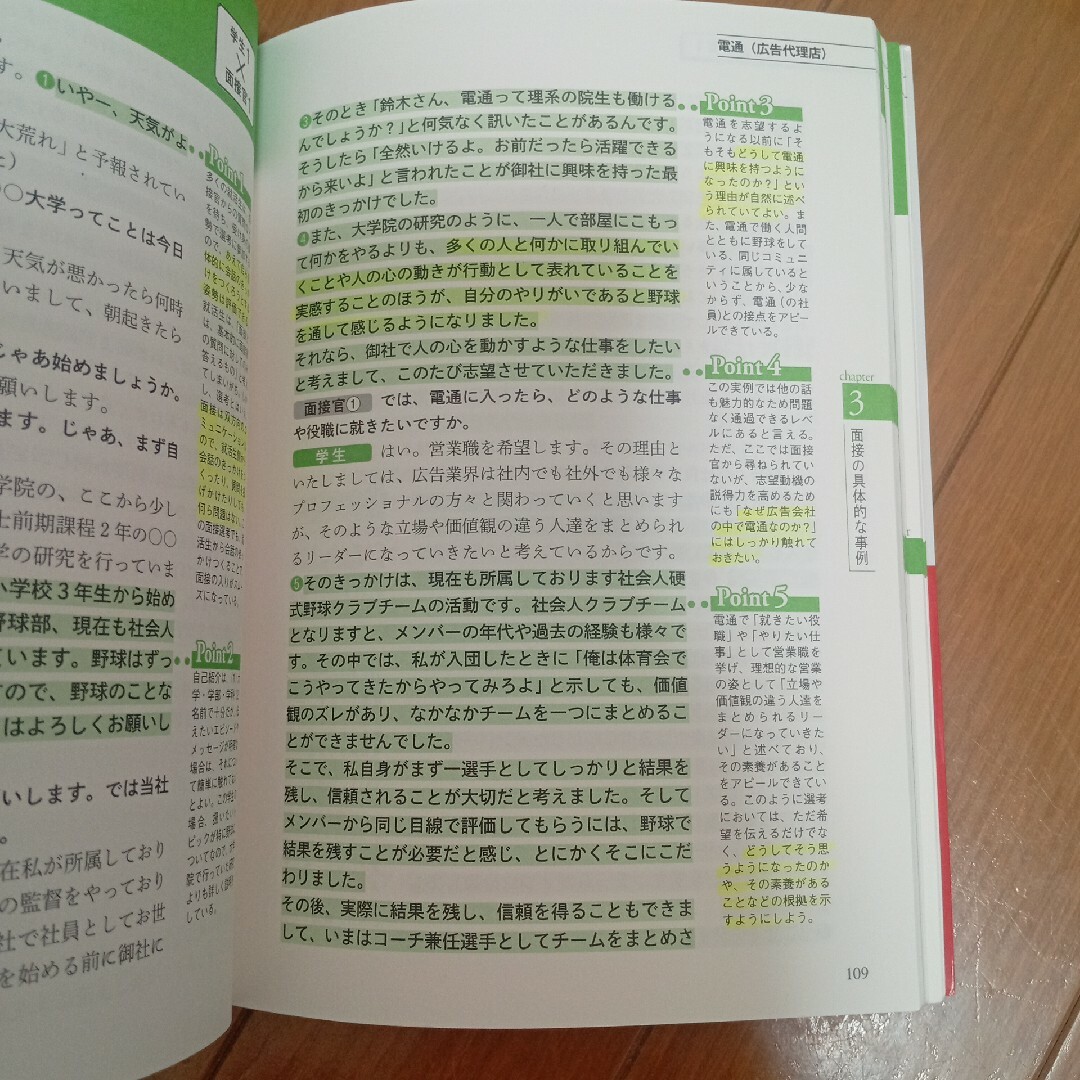 学生1
×
面接官1
す。❶いやー、天気がよ
大荒れ」と予報されてい
と)
○○大学ってことは今日
天気が悪かったら何時
いまして、朝起きたら
じゃあ始めましょうか。
願いします。
ます。じゃあ、まず自
学院の、ここから少し
士前期課程2年の○○
学の研究を行っていま
小学校3年生から始め
野球部、現在も社会人
ています。野球はずっ
すので、野球のことな
はよろしくお願いし
いします。では当社
在私が所属しており
の監督をやっており
社で社員としてお世
を始める前に御社に
Point 1
Point 2
電通（広告代理店）
❸そのとき「鈴木さん、電通って理系の院生も働ける
んでしょうか？」と何気なく訊いたことがあるんです。
そうしたら「全然いけるよ。お前だったら活躍できる
から来いよ」と言われたことが御社に興味を持った最
初のきっかけでした。
❹また、大学院の研究のように、一人で部屋にこもっ
て何かをやるよりも、多くの人と何かに取り組んでい
くことや人の心の動きが行動として表れていることを
実感することのほうが、自分のやりがいであると野球
を通して感じるようになりました。
それなら、御社で人の心を動かすような仕事をしたい
と考えまして、このたび志望させていただきました。
面接官① では、電通に入ったら、どのような仕事
や役職に就きたいですか。
学生 はい。営業職を希望します。その理由と
いたしましては、広告業界は社内でも社外でも様々な
プロフェッショナルの方々と関わっていくと思います
が、そのような立場や価値観の違う人達をまとめられ
るリーダーになっていきたいと考えているからです。
❺そのきっかけは、現在も所属しております社会人硬
式野球クラブチームの活動です。社会人クラブチーム
となりますと、メンバーの年代や過去の経験も様々で
す。その中では、私が入団したときに「俺は体育会で
こうやってきたからやってみろよ」と示しても、価値
観のズレがあり、なかなかチームを一つにまとめるこ
とができませんでした。
そこで、私自身がまず一選手としてしっかりと結果を
残し、信頼されることが大切だと考えました。そして
メンバーから同じ目線で評価してもらうには、野球で
結果を残すことが必要だと感じ、とにかくそこにこだ
わりました。
その後、実際に結果を残し、信頼を得ることもできま
して、いまはコーチ兼任選手としてチームをまとめさ
Point 3
電通を志望するよ
うになる以前に「そ
もそもどうして電通
に興味を持つように
なったのか？」とい
う理由が自然に述べ
られていてよい。ま
た、電通で働く人間
とともに野球をして
いる、同じコミュニ
ティに属していると
いうことから、少な
からず、電通（の社
員）との接点をアピー
ルできている。
Point 4
この実例では他の話
も魅力的なため問題
なく通過できるレベ
ルにあると言える。
ただ、ここでは面接
官から尋ねられてい
ないが、志望動機の
説得力を高めるため
にも「なぜ広告会社
の中で電通なのか？」
にはしっかり触れて
おきたい。
Point 5
電通で「就きたい役
職」や「やりたい仕
事」として営業職を
挙げ、理想的な営業
の姿として「立場や
価値観の違う人達を
まとめられるリー
ダーになっていきた
い」と述べており、
その素養があること
をアピールできてい
る。このように選考
においては、ただ希
望を伝えるだけでな
く、どうしてそう思
うようになったのか
や、その素養がある
ことなどの根拠を示
すようにしよう。
chapter
3
面接の具体的な事例
109